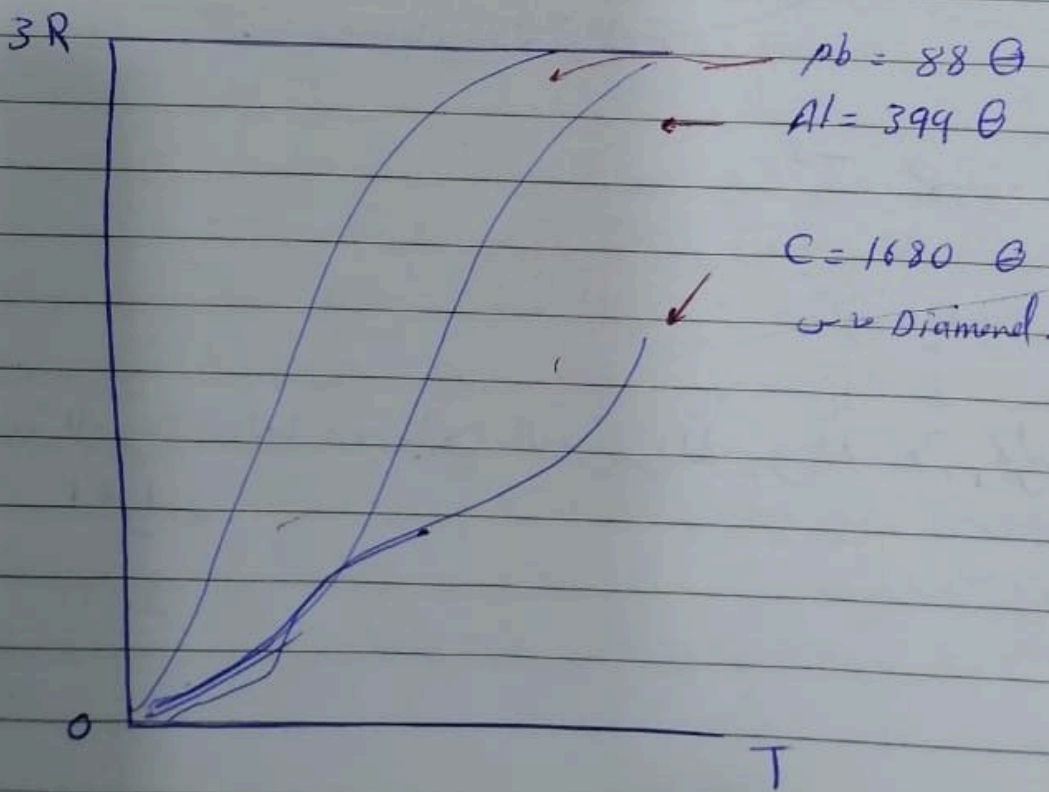 3R
pb = 88 θ
Al = 399 θ
C = 1680 θ
Diamend.
0
T